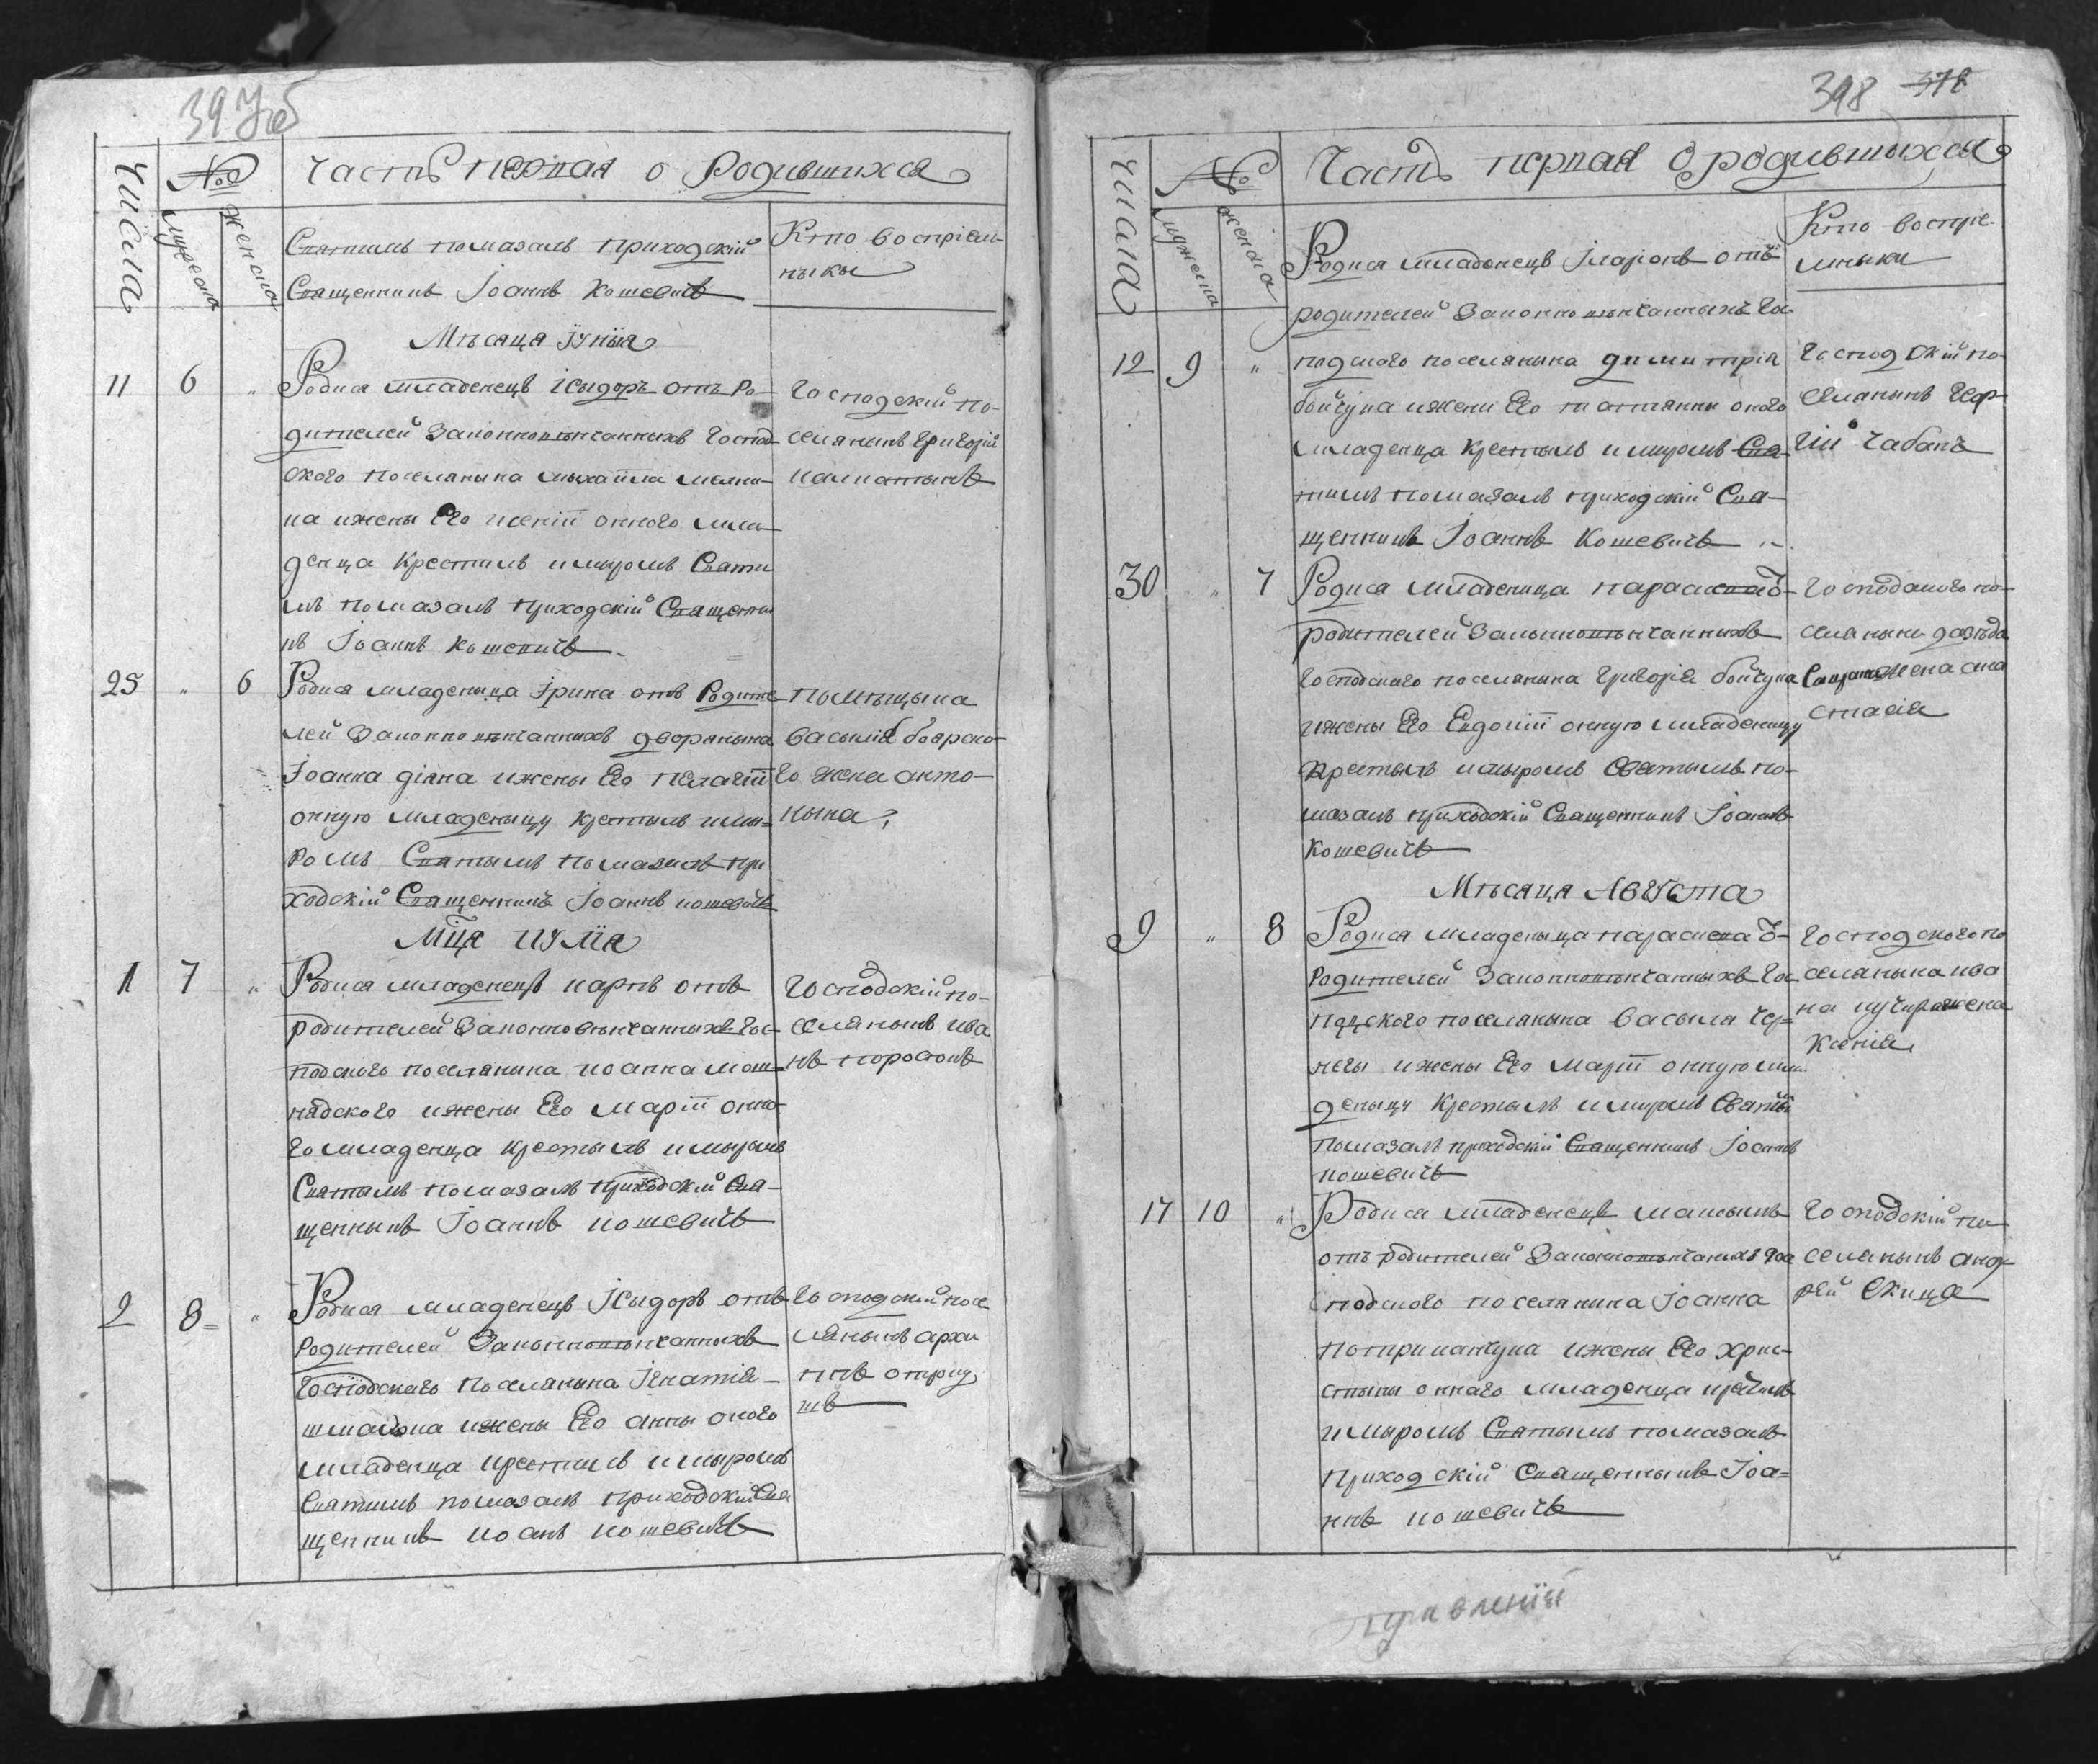 397 об
Числа
№
мужеска
женска
Часть первая о Родившихся
Святимъ помазалъ приходскій
Священникъ Іоаннъ Кошевичъ
Кто воспріем-
ныкы
Мѣсяца іунія
11 6 „
Родися младенецъ ісыдоръ отъ Ро-
дителей Законновѣнчанныхъ Господ
ского поселянына мыхаила
на ижены Его ксеніи онного мла-
денца Крестилъ имиромъ Святи
мъ помазалъ приходскій Священни
къ Іоаннъ Кошевичъ
Господскій по-
селянынъ григорій
25 „ 6
Родися младеныца Ірина отъ Родите-
лей Законно вѣнчанныхъ дворянына
Іоанна діяна ижены Его пелагіи
онную младеныцу крестылъ имы-
ромъ Святымъ помазалъ при
ходскій Священникъ Іоаннъ кошевичъ
Помѣщыка
васылія боярско-
го жена анто-
нына
Мця иулія
1 7 „
Родися младенецъ карпъ отъ
родителей Законновѣнчанныхъ Гос-
подского поселянына иоанна мош-
нядского ижены Его маріи онно-
го младенца крестылъ имыромъ
Святымъ помазалъ приходскій Свя-
щенныкъ Іоаннъ кошевичъ
Господскій по-
селянынъ ива
нъ поросюкъ
2 8 „
Родися младенецъ Ісыдоръ отъ
родителей Законновѣнчанныхъ
Господского поселянына Ігнатія
ижены Его анны оного
младенца крестилъ имыромъ
Святимъ помазалъ приходскій Свя
щенникъ иоанъ кошевичъ
Господскій посе
лянынъ архи
ппъ
398 378
Числа
№
мужеска
женска
Часть первая о родившыхся
Кто воспріе-
мныки
12 9 „
Родися младенецъ Іларіонъ отъ
родителей Законно вѣнчанныхъ Гос
подского поселянына димитрія
бойчука ижени Его татіянны оного
младенца Крестылъ имиромъ Свя
тимъ помазалъ приходскій Свя-
щенникъ Іоаннъ Кошевичъ
Господскій по-
селянынъ Геор-
гій Чабанъ
30 „ 7
Родися младеница параскева Ѿ-
родителей Законновѣнчанныхъ
Господского поселянына григорія бойчука
ижены Его Евдокіи онную младеницу
крестылъ имыромъ Святымъ по-
мазалъ приходскій Священникъ Іоаннъ
Кошевичъ
Господского по-
селяныни
жена ана
стасія
Мѣсяця Августа
9 „ 8
Родися младеныца параскева Ѿ-
родителей Законновѣнчанныхъ Гос
подского поселянына васыля Чер-
негы ижены Его маріи онную мла
деныцу Крестылъ имиромъ Святы
помазалъ приходскій Священникъ Іоаннъ
кошевичъ
Господского по
селяныка ива
на жена
Ксенія
17 10 „
Родися младенецъ максымъ
отъ родителей Законновѣнчаныхъ Гос
подского поселянина Іоанна
ижены Его хрис-
тыны онного младенца
имыромъ Святымъ помазалъ
приходскій Священныкъ Іоа-
ннъ кошевичъ
Господскій по-
селянынъ анд-
рей Скица
правленія